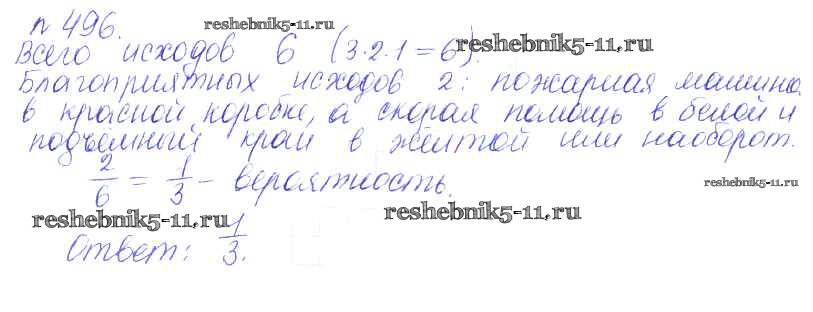 № 496. reshebnik5-11.ru
Всего исходов 6 (3·2·1=6). reshebnik5-11.ru
Благоприятных исходов 2: пожарная машина
в красной коробке, а скорая помощь в белой и
подъёмный кран в жёлтой или наоборот.
2/6 = 1/3 - вероятность. reshebnik5-11.ru
reshebnik5-11.ru reshebnik5-11.ru
Ответ: 1/3.